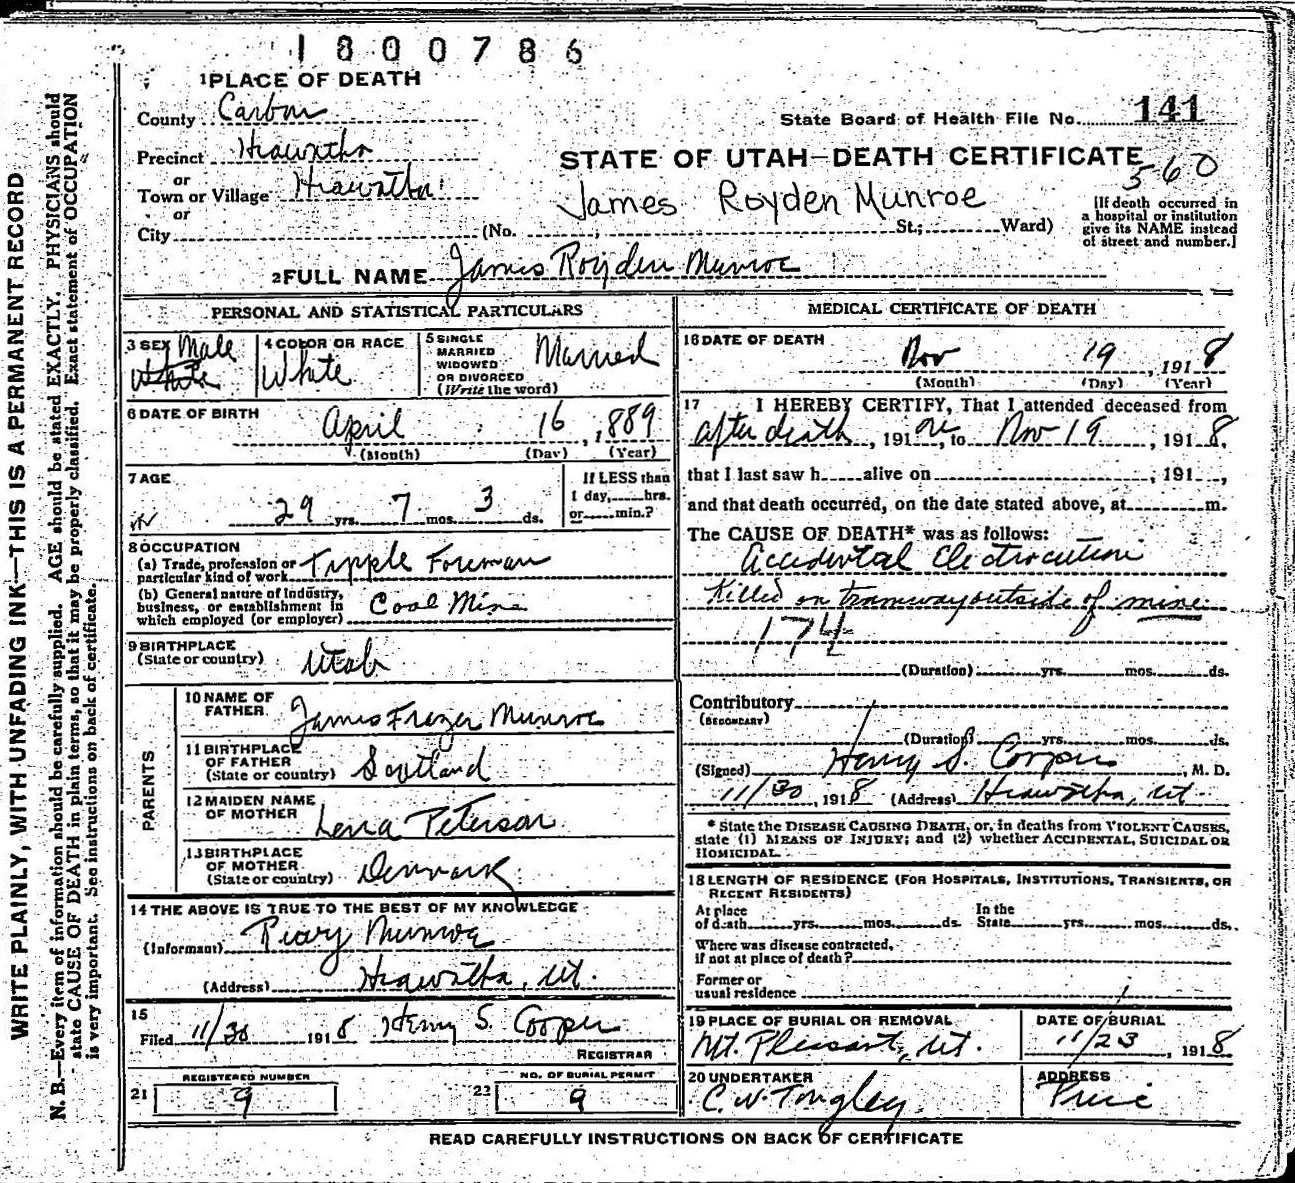 1800786
1 PLACE OF DEATH
County Carbon
State Board of Health File No. 141
Precinct Hiawatha
STATE OF UTAH—DEATH CERTIFICATE
560
or
Town or Village Hiawatha
James Royden Munroe
or
City (No. , St.; Ward)
[If death occurred in
a hospital or institution
give its NAME instead
of street and number.]
2 FULL NAME James Royden Munroe
PERSONAL AND STATISTICAL PARTICULARS
3 SEX Male
White
4 COLOR OR RACE
White
5 SINGLE
MARRIED
WIDOWED
OR DIVORCED
(Write the word)
Married
6 DATE OF BIRTH
April 16, 1889
(Month) (Day) (Year)
7 AGE
29 yrs. 7 mos. 3 ds.
If LESS than
1 day, hrs.
or min.?
8 OCCUPATION
(a) Trade, profession or
particular kind of work Tipple Foreman
(b) General nature of Industry,
business, or establishment in
which employed (or employer) Coal Mine
9 BIRTHPLACE
(State or country) Utah
PARENTS
10 NAME OF
FATHER James Frazer Munroe
11 BIRTHPLACE
OF FATHER
(State or country) Scotland
12 MAIDEN NAME
OF MOTHER Lena Peterson
13 BIRTHPLACE
OF MOTHER
(State or country) Denmark
14 THE ABOVE IS TRUE TO THE BEST OF MY KNOWLEDGE
(Informant) Munroe
(Address) Hiawatha, Ut.
15
Filed 11/30 1918 Henry S. Cooper
REGISTRAR
REGISTERED NUMBER
21 9
NO. OF BURIAL PERMIT
22 9
MEDICAL CERTIFICATE OF DEATH
16 DATE OF DEATH
Nov 19, 1918
(Month) (Day) (Year)
17 I HEREBY CERTIFY, That I attended deceased from
after death, 191 , to Nov 19, 1918,
that I last saw h alive on , 191 ,
and that death occurred, on the date stated above, at m.
The CAUSE OF DEATH* was as follows:
Accidental Electrocution
Killed on tramway outside of mine
174
(Duration) yrs. mos. ds.
Contributory
(SECONDARY)
(Duration) yrs. mos. ds.
(Signed) Henry S. Cooper, M. D.
11/30, 1918 (Address) Hiawatha, Ut.
* State the DISEASE CAUSING DEATH, or, in deaths from VIOLENT CAUSES,
state (1) MEANS OF INJURY; and (2) whether ACCIDENTAL, SUICIDAL OR
HOMICIDAL.
18 LENGTH OF RESIDENCE (FOR HOSPITALS, INSTITUTIONS, TRANSIENTS, OR
RECENT RESIDENTS)
At place
of death yrs. mos. ds.
In the
State yrs. mos. ds.
Where was disease contracted,
if not at place of death?
Former or
usual residence
19 PLACE OF BURIAL OR REMOVAL
Mt. Pleasant, Ut.
DATE OF BURIAL
11/23, 1918
20 UNDERTAKER
C. W.
ADDRESS
Price
READ CAREFULLY INSTRUCTIONS ON BACK OF CERTIFICATE
WRITE PLAINLY, WITH UNFADING INK—THIS IS A PERMANENT RECORD
N. B.—Every item of information should be carefully supplied. AGE should be stated EXACTLY. PHYSICIANS should
state CAUSE OF DEATH in plain terms, so that it may be properly classified. Exact statement of OCCUPATION
is very important. See instructions on back of certificate.